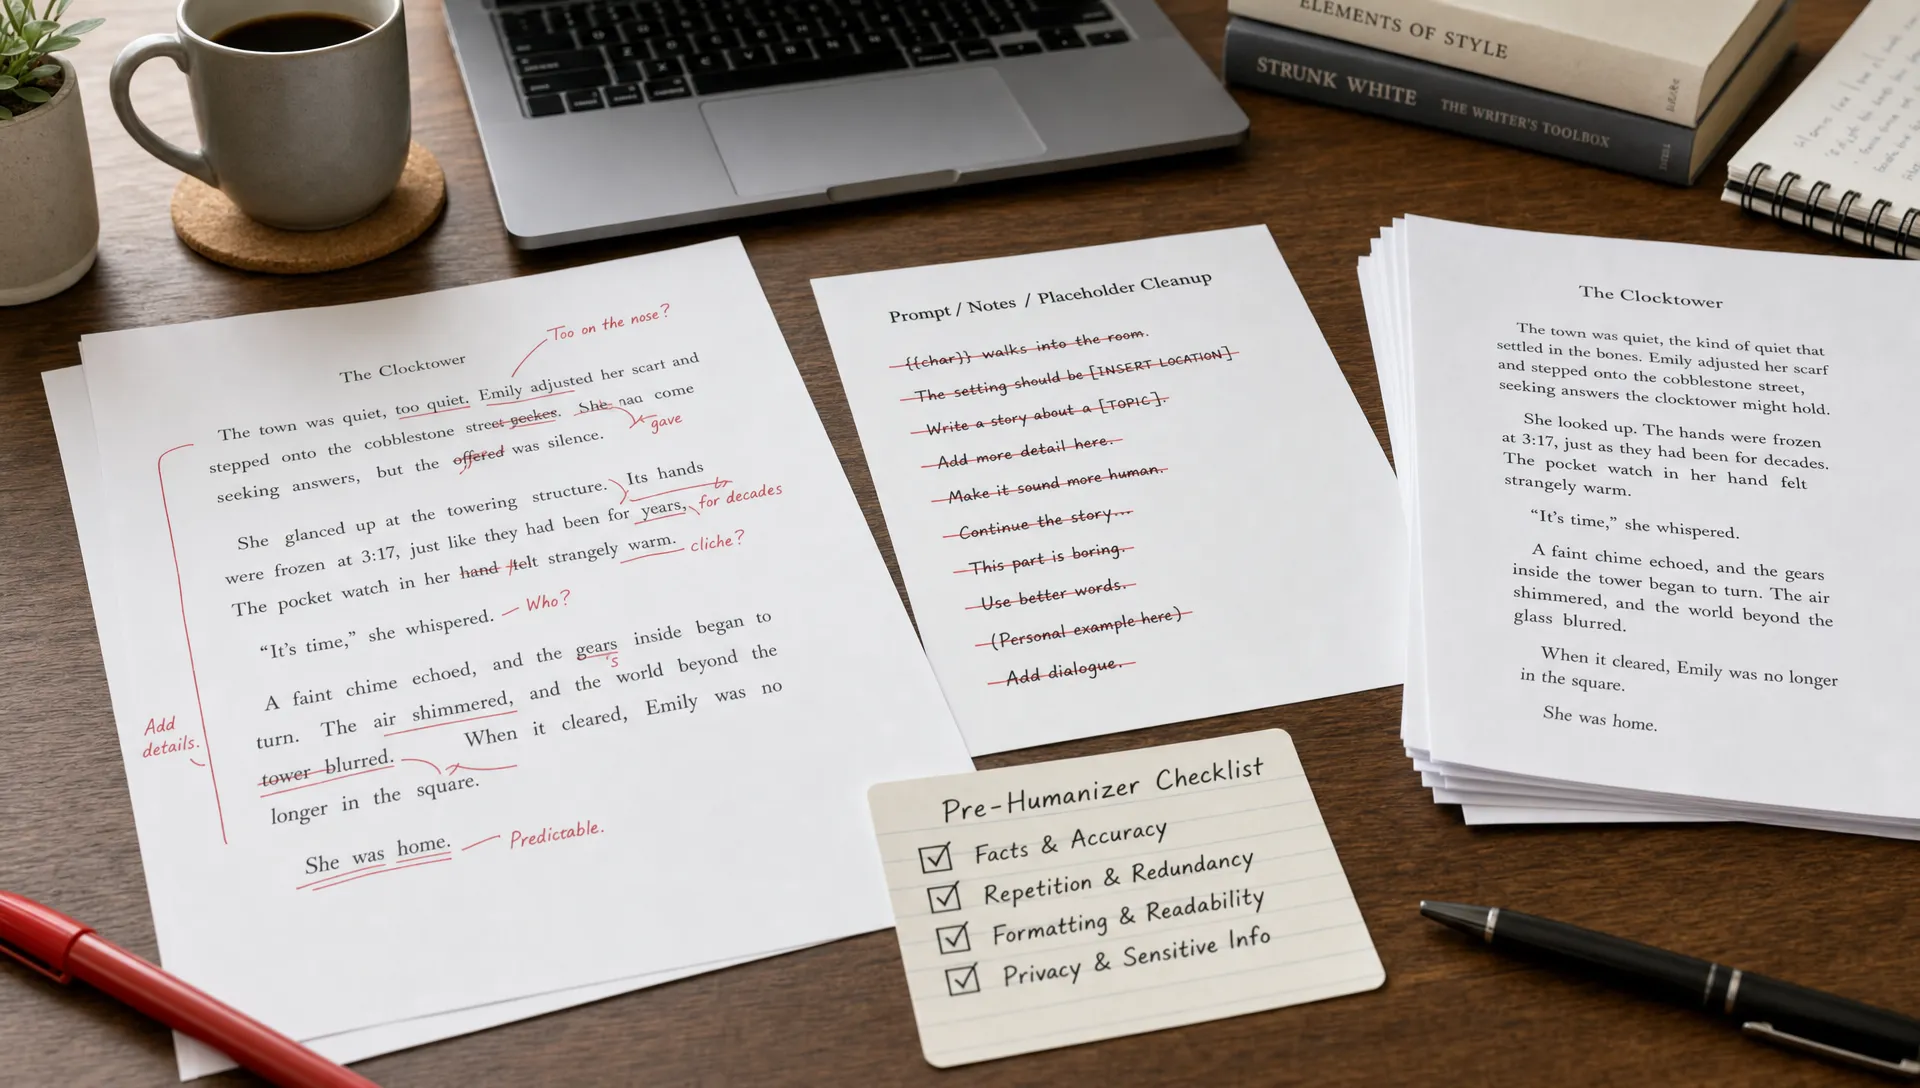 ELEMENTS OF STYLE
STRUNK WHITE THE WRITER'S TOOLBOX
The Clocktower
Too on the nose?
The town was quiet, too quiet. Emily adjusted her scarf and
stepped onto the cobblestone street geekes. She had come
gave
seeking answers, but the offered was silence.
She glanced up at the towering structure. Its hands
were frozen at 3:17, just like they had been for years,
for decades
The pocket watch in her hand felt strangely warm.
cliche?
"It's time," she whispered.
Who?
A faint chime echoed, and the gears inside began to
's
turn. The air shimmered, and the world beyond the
tower blurred. When it cleared, Emily was no
longer in the square.
Add
details.
She was home.
Predictable.
Prompt / Notes / Placeholder Cleanup
{{char}} walks into the room.
The setting should be [INSERT LOCATION]
Write a story about a [TOPIC].
Add more detail here.
Make it sound more human.
Continue the story...
This part is boring.
Use better words.
(Personal example here)
Add dialogue.
Pre-Humanizer Checklist
Facts & Accuracy
Repetition & Redundancy
Formatting & Readability
Privacy & Sensitive Info
The Clocktower
The town was quiet, the kind of quiet that
settled in the bones. Emily adjusted her scarf
and stepped onto the cobblestone street,
seeking answers the clocktower might hold.
She looked up. The hands were frozen
at 3:17, just as they had been for decades.
The pocket watch in her hand felt
strangely warm.
"It's time," she whispered.
A faint chime echoed, and the gears
inside the tower began to turn. The air
shimmered, and the world beyond the
glass blurred.
When it cleared, Emily was no longer
in the square.
She was home.